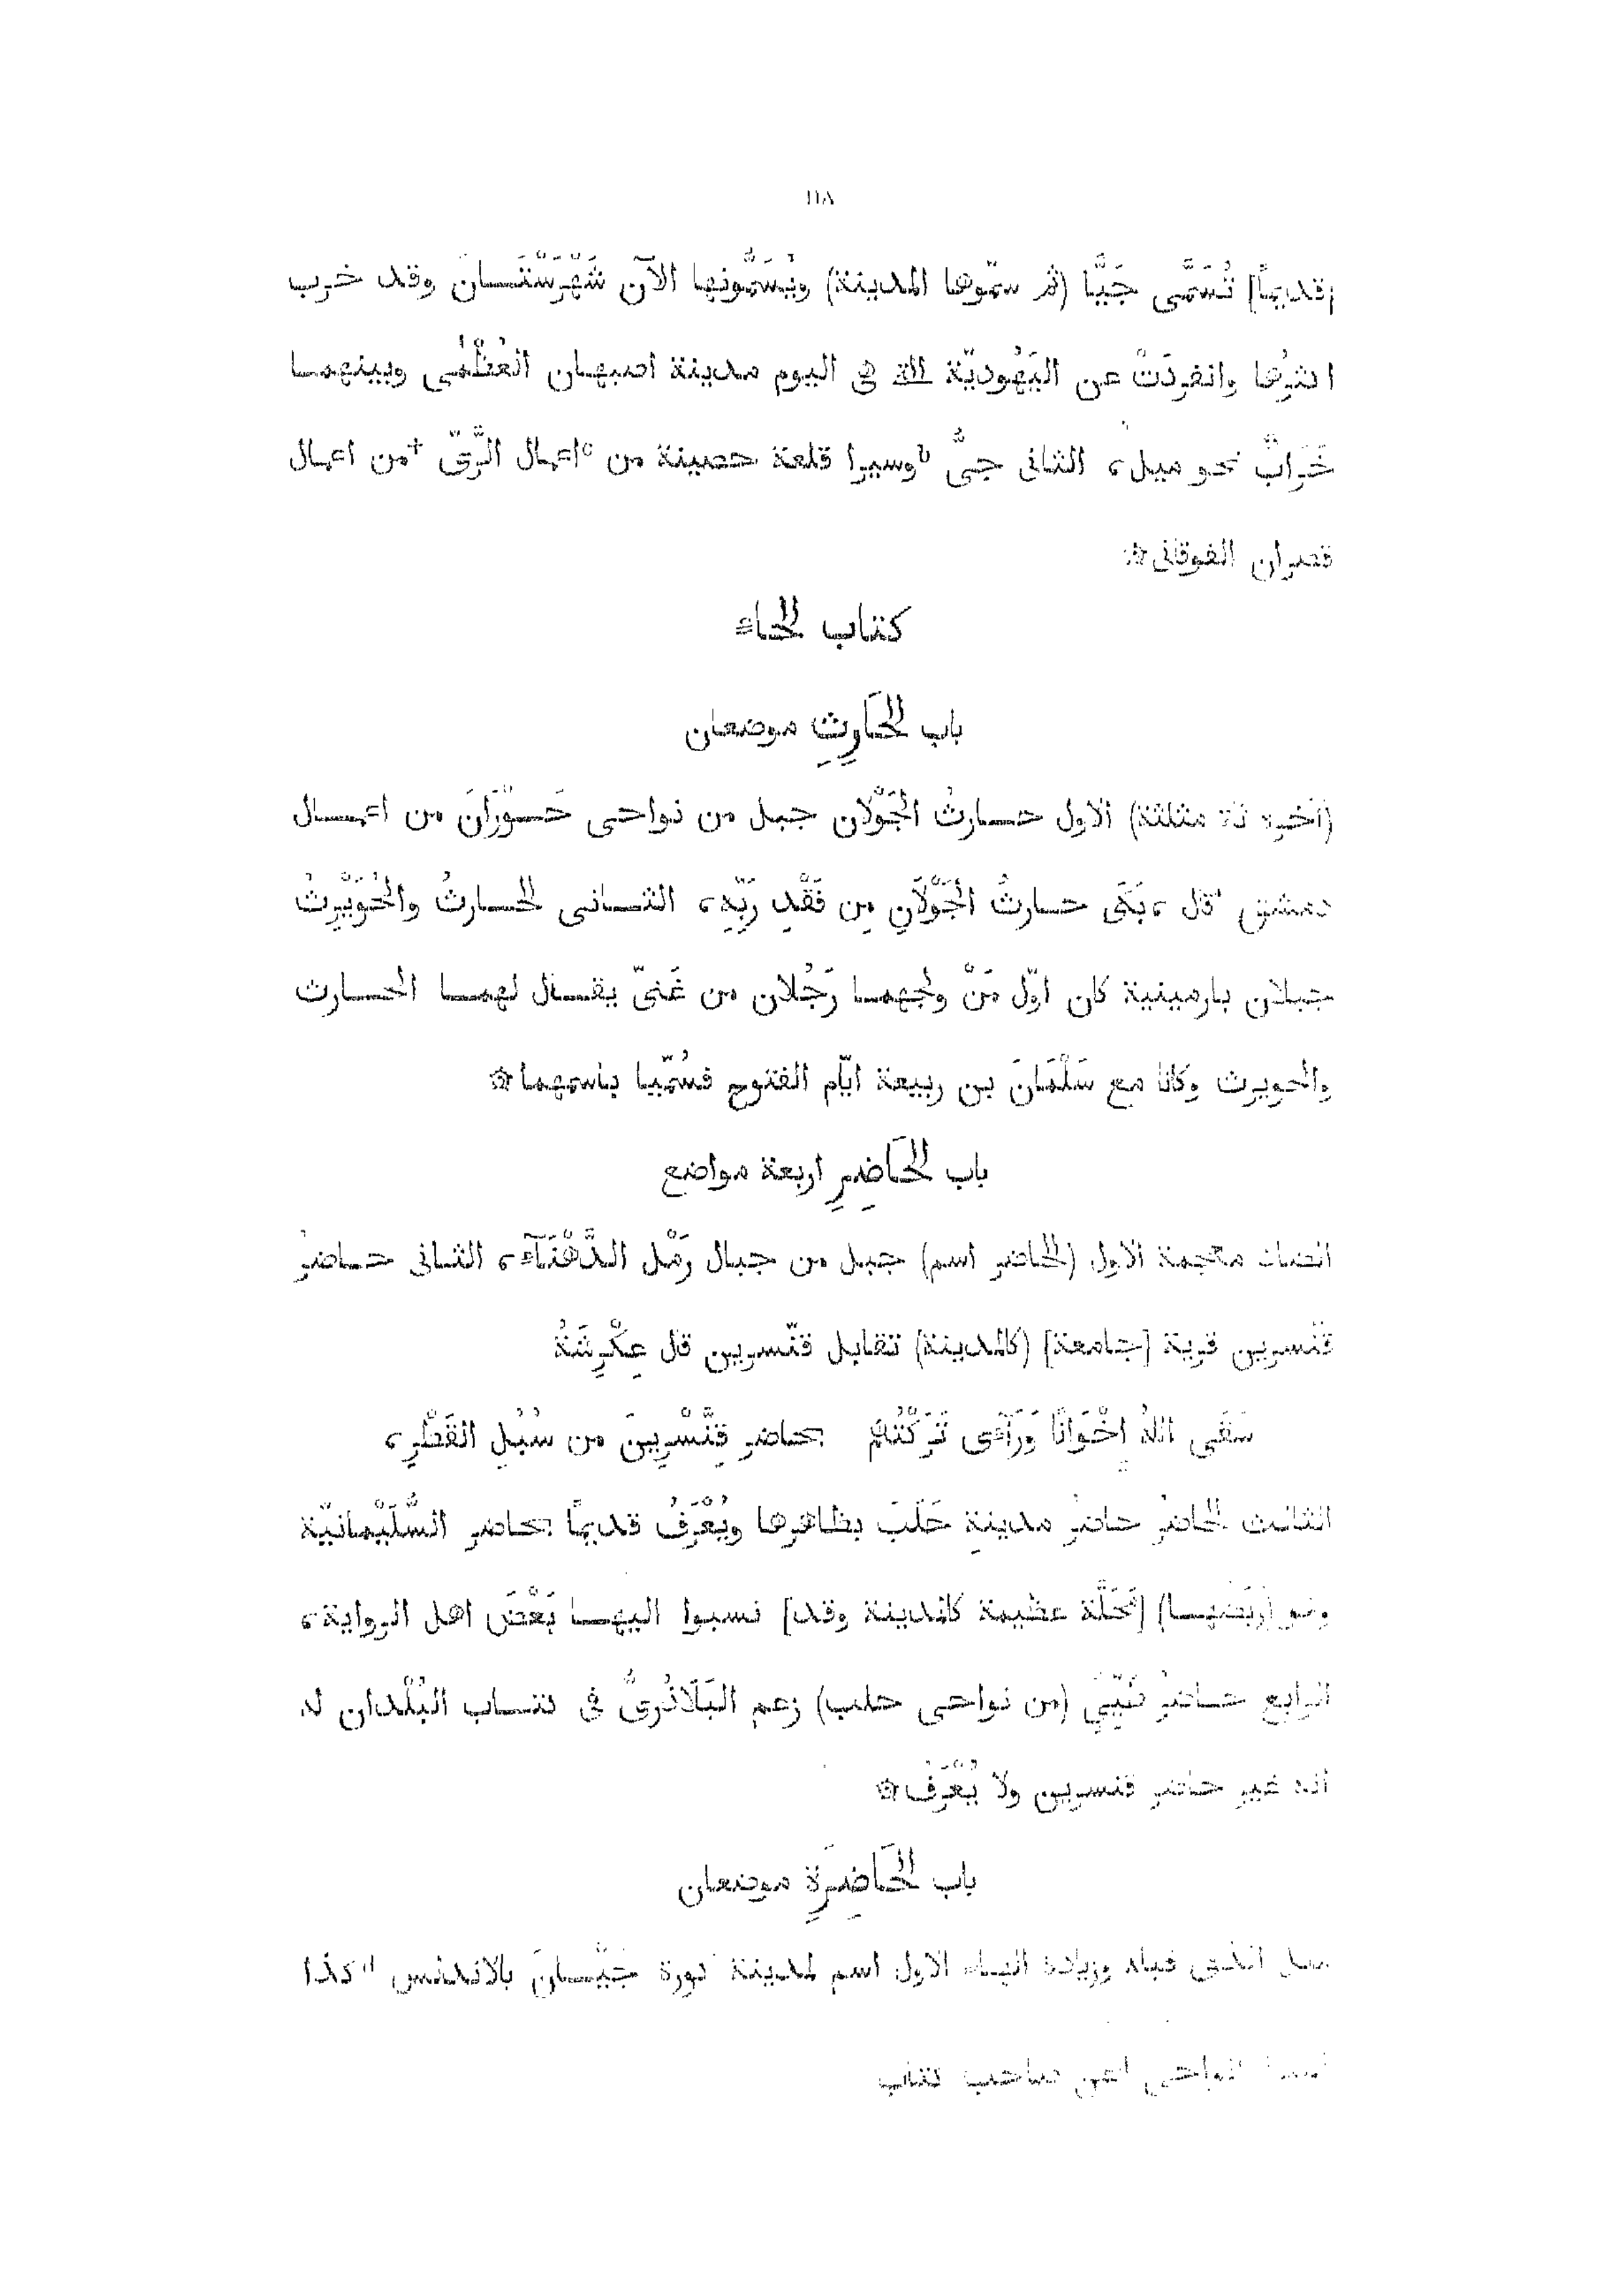 ١١٨
[قديمًا] تُسَمَّى جَيًّا (ثم سمّوها المدينة) ويُسَمُّونها الآن شَهْرَسْتَان وقد خرب
اكثرُها وانفردَتْ عن اليَهُوديّة التى هى اليوم مدينة اصبهان العُظْمَى وبينهما
خَرَابٌ نحو ميل، الثانى جىُّ وسيرا قلعة حصينة من °اعمال الرَّىّ +من اعمال
قصران الفوقانى☆
كتاب الحاء
باب الحَارِثِ موضعان
(آخره ثاء مثلثة) الاول حارثُ الجَوْلان جبل من نواحى حَوْرَانَ من اعمال
دمشق قال، بَكَى حارثُ الجَوْلَانِ مِن فَقْدِ رَبِّهِ، الثانى الحارثُ والحُوَيْرِثُ
جبلان بارمينية كان اوّل مَنْ ولجهما رَجُلان من غَنىّ يقال لهما الحارث
والحويرث وكانا مع سَلْمَانَ بن ربيعة ايّام الفتوح فسُمّيا باسمهما☆
باب الحَاضِرِ اربعة مواضع
الضاد معجمة الاول (الحاضر اسم) جبل من جبال رَمْل الدَّهْنَآء، الثانى حاضرُ
قنّسرين قرية [جامعة] (كالمدينة) تقابل قنّسرين قال عِكْرِشَةُ
سَقَى اللهُ إِخْوَانًا وَرَآءى تَرَكْتُهُمْ بحاضر قِنَّسْرِينَ من سُبُلِ القَطْرِ،
الثالث الحاضر حاضرُ مدينةِ حَلَبَ بظاهرها ويُعْرَفُ قديمًا بحاضر السُّلَيْمانيّة
وهو (رَبَضها) [مَحَلَّة عظيمة كالمدينة وقد] نسبوا اليها بَعْضَ اهل الرواية،
الرابع حاضرُ طَيِّىٍ (من نواحى حلب) زعم البَلَاذُرىُّ فى كتاب البُلْدان له
أنه غير حاضر قنسرين ولا يُعْرَفُ☆
باب الحَاضِرَةِ موضعان
مثل الذى قبله وزيادة الهاء الاول اسم لمدينة كورة جَيَّانَ بالاندلس كذا
صاحب كتاب